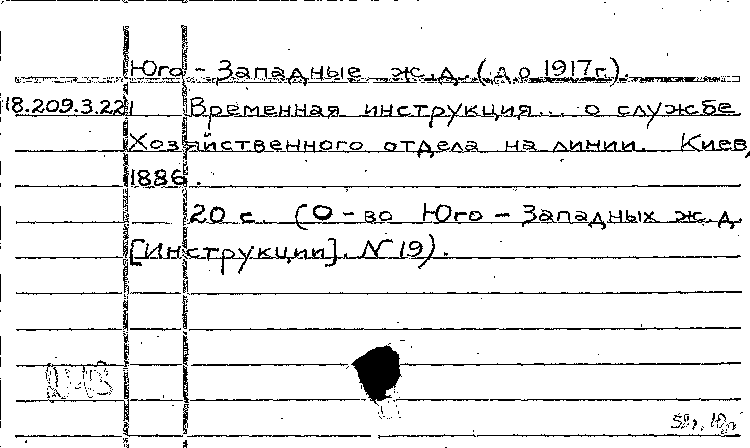 Юго - Западные ж.д. (до 1917г.).
18.209.3.221 Временная инструкция... о службе
Хозяйственного отдела на линии. Киев,
1886.
20 с. (О-во Юго - Западных ж.д.
[Инструкции]. N 19).